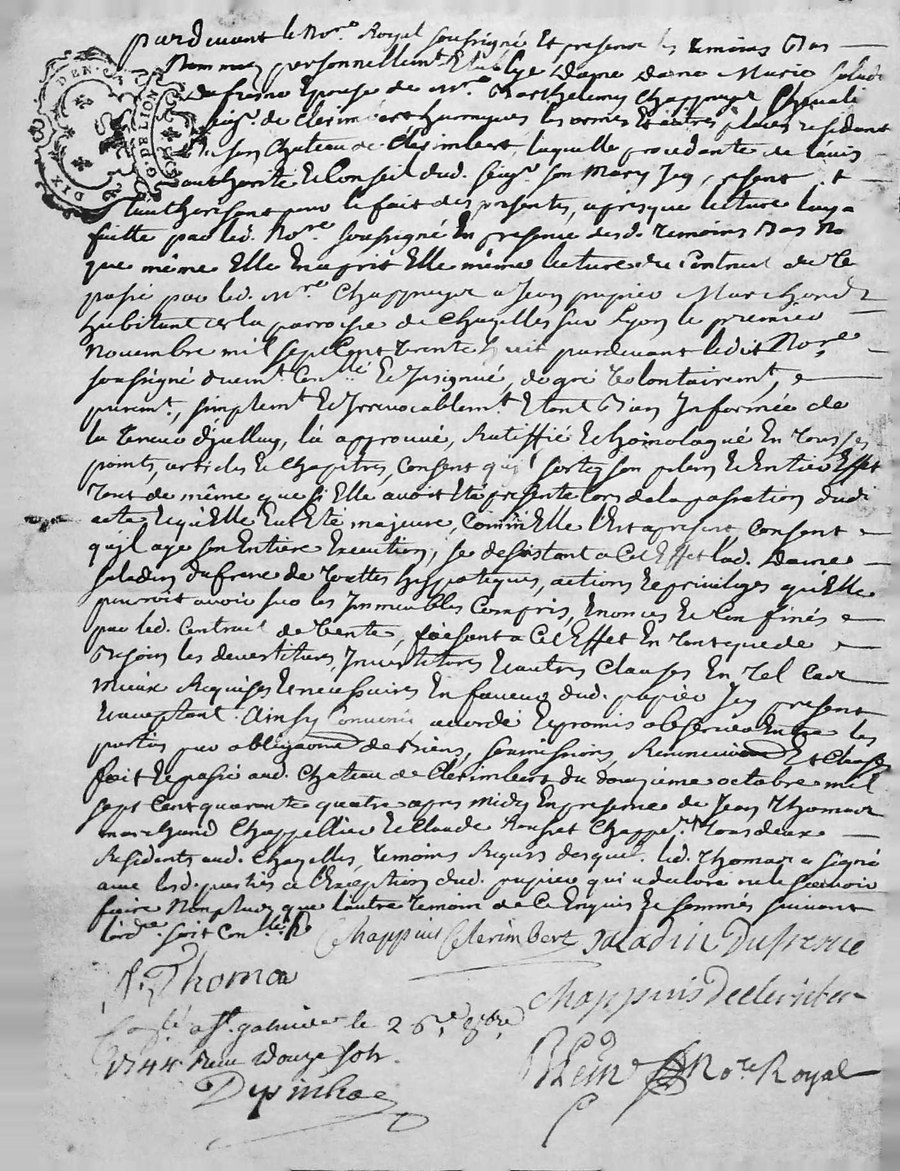 pardevant le No.re Royal soussigné Et presence les temoins Bas
Nommez personnellem.t Etablye Dame dame Marie Salad
Dufresne Epouse de M.re Barthelemy Chappuys Chevali
seig.r de Clerimbert hurongues les ormes Et autres places residant
En son Chateau de Clerimbert, laquelle procedante de lauis
authorité Et Conseil dud. seig.r son Mary Icy present Et
lauthorisant pour le fait des presentes, apres que lecture luy a
faitte par led. No.re soussigné En presence desd. temoins Bas No
que même Elle En a prit Elle même lecture du Contrat de Ve
passé par led. M.re Chappuys a Jean papier Marchand
habitant en la parroisse de Chazelles sur Lyon le premier
Novembre mil sept Cent trente huit pardevant ledit No.re
soussigné duem.t Con.llé Et Insinué, de gré volontairem.t,
purem.t, simplem.t Et Irrevocablem.t Et tout Bien Informée de
la teneur dJelluy, la approuué, Ratiffié Et homologué En tous ses
points, articles Et Chapitres, Consent quil sorte son plein Et Entier Effet
tout de même que si Elle auoit Eté presente lors de la passation dudi
acte Et qu'Elle Eut Eté majeure, Comm'Elle l'Est apresent, Consent
quil aye son Entiere Execution, se desistant a Cet Effet lad. Dame
Saladin dufrene de touttes hyppoteques, actions Et privileges qu'Elle
pourroit avoir sur les Immeubles Compris, Enoncés Et Confinés
par led. Contrat de Vente, faisant a Cet Effet En tant que de
Besoin les devestitures, Investitures Et autres Clauses En tel Cas
mieux Requises Et necessaires En faveur dud. papier Icy present
Et acceptant. Ainsy Convenu accordé Et promis observer Entre les
parties par obligaõns de Biens, soumissions, Renonciaõns Et Clauses
fait Et passé aud. Chateau de Clerimbert du douzieme octobre mil
sept Cent quarante quatre apres midy En presence de Jean Thomas
marchand Chappellier Et Claude Rousset Chappe.r tous deux
Residents aud. Chazelles, temoins Requis desquels led. Thomas a signé
avec lesd. parties a l'Exception dud. papier qui a declaré ne le scauoir
faire Non plus que l'autre temoin de Ce Enquis Et sommés suiuant
lord.ce soit Con.llé
Chappuis Clerimbert Saladin Dufresne
J. Thomas
Chappuis De clerimber
a St. galmier le 26.e 8bre
1744 Reçu douze sols.
No.re Royal
DIX DEN.
G. DE LION